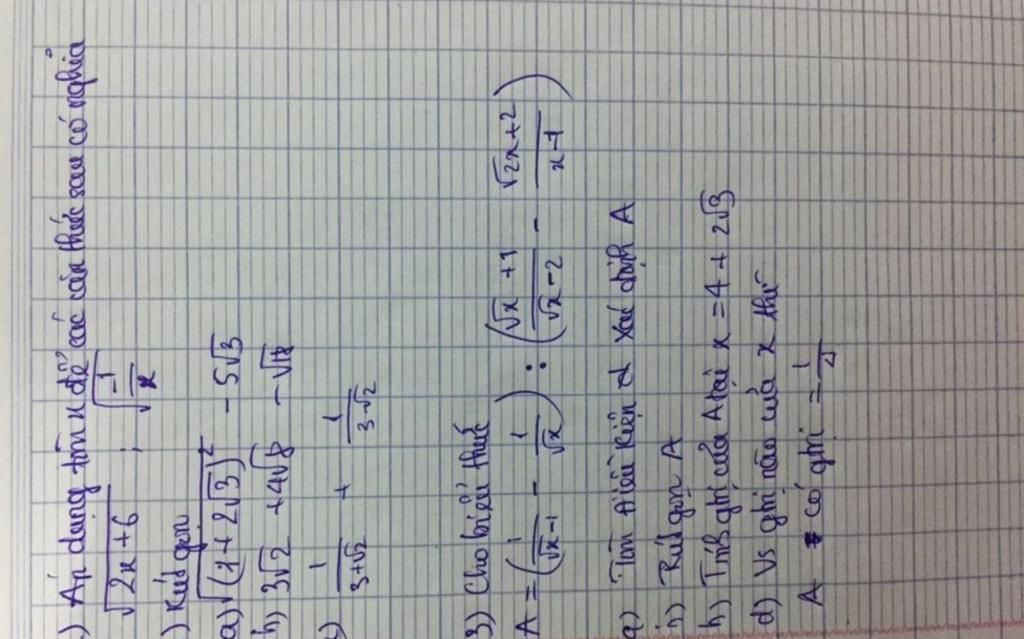 ) Áp dụng tìm x để các căn thức sau có nghĩa
√(2x+6) ; √(-1/x)
) Rút gọn
a) √((1+2√3)²) - 5√3
b) 3√2 + 4√8 - √18
c) 1/(3+√2) + 1/(3-√2)
3) Cho biểu thức
A = (1/(√x-1) - 1/√x) : ((√x+1)/(√x-2) - (√2x+2)/(x-1))
a) Tìm điều kiện d xác định A
b) Rút gọn A
h) Tính gtrị của A tại x = 4 + 2√3
d) Vs gtrị nào của x thì
A có gtrị = 1/4